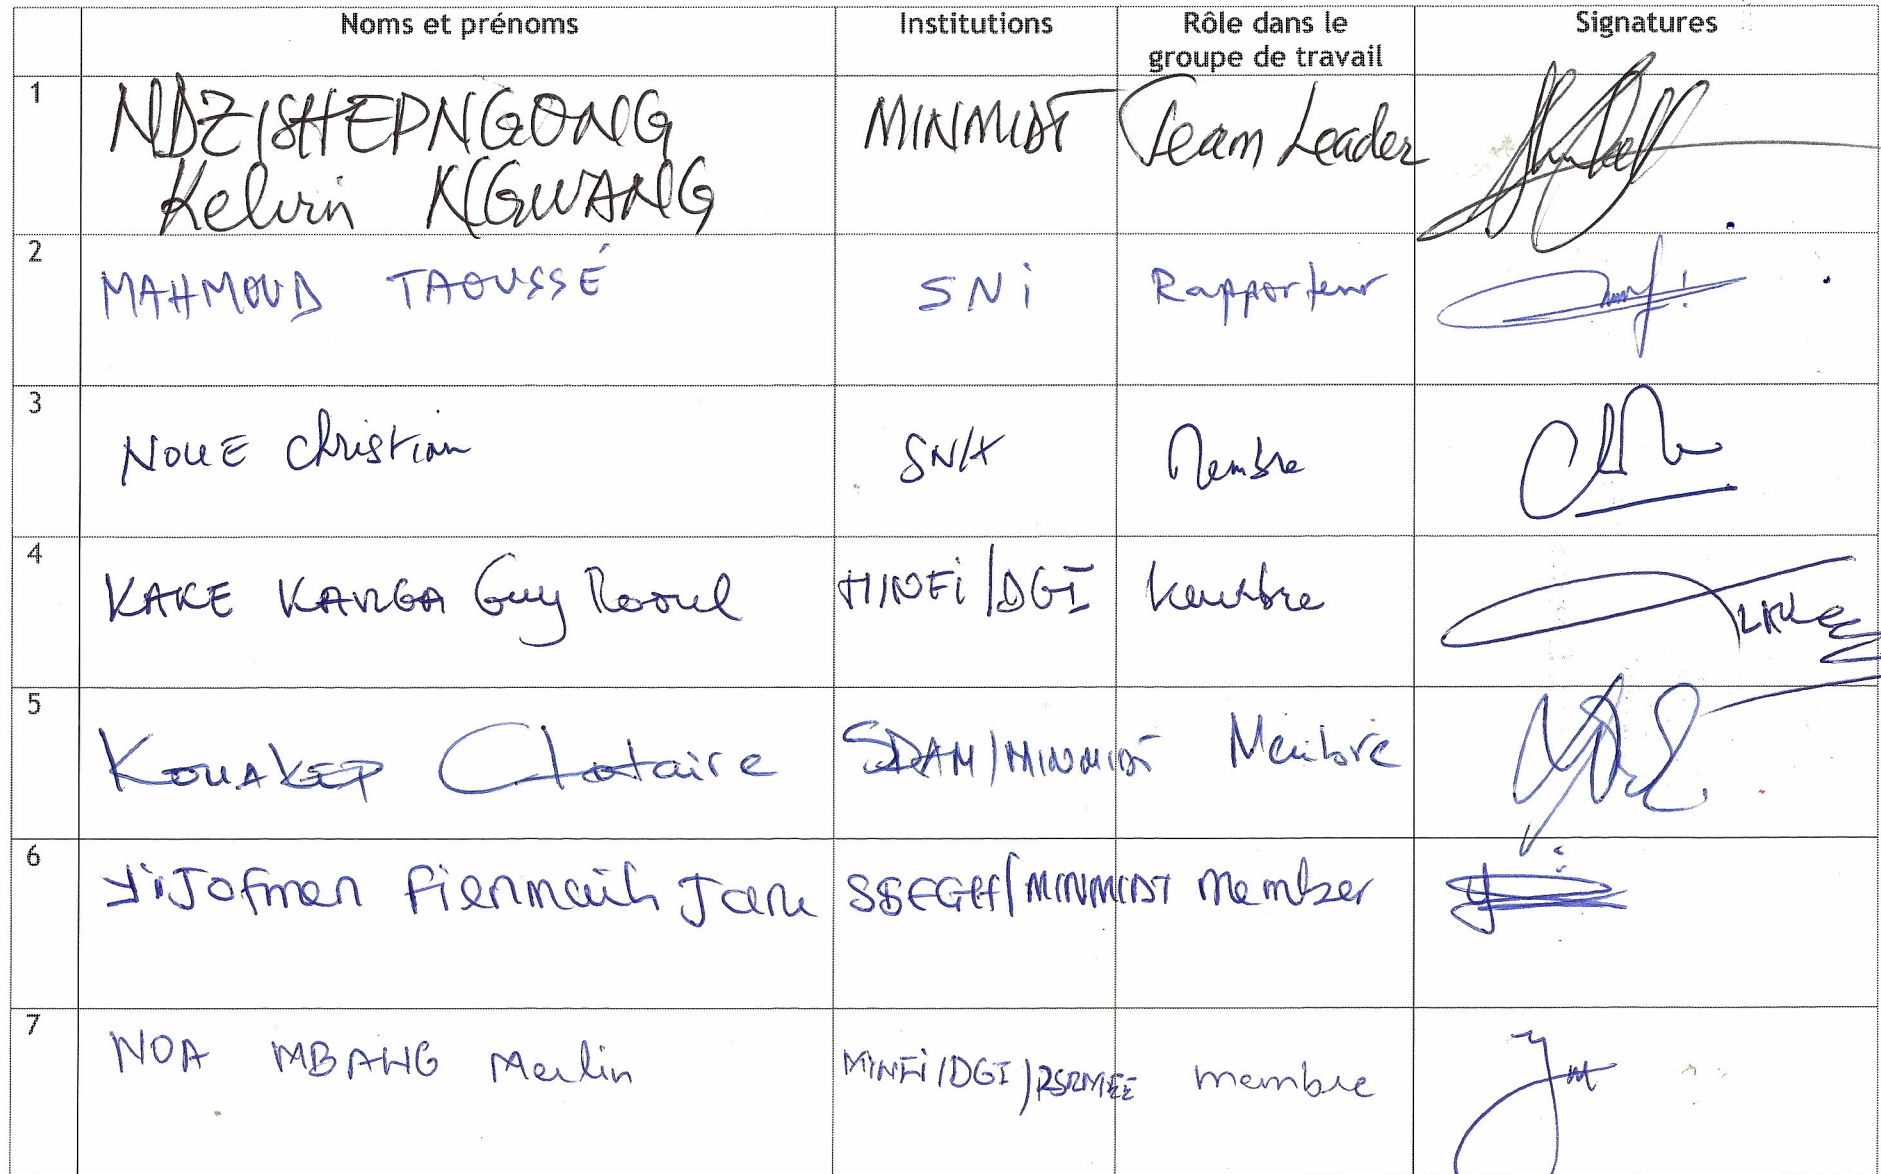 Noms et prénoms Institutions Rôle dans le groupe de travail Signatures
1 NDZISHEPNGONG Kelvin NGWANG MINMIDT Team Leader
2 MAHMOUD TAOUSSÉ SNi Rapporteur
3 NOUE Christian Membre
4 KAKE KANGA Guy Raoul MINFi/DGI Membre
5 KOUAKEP Clotaire SDAM/MINMIDT Membre
6 MINMIDT Member
7 NOA MBANG Merlin MINFi/DGI membre